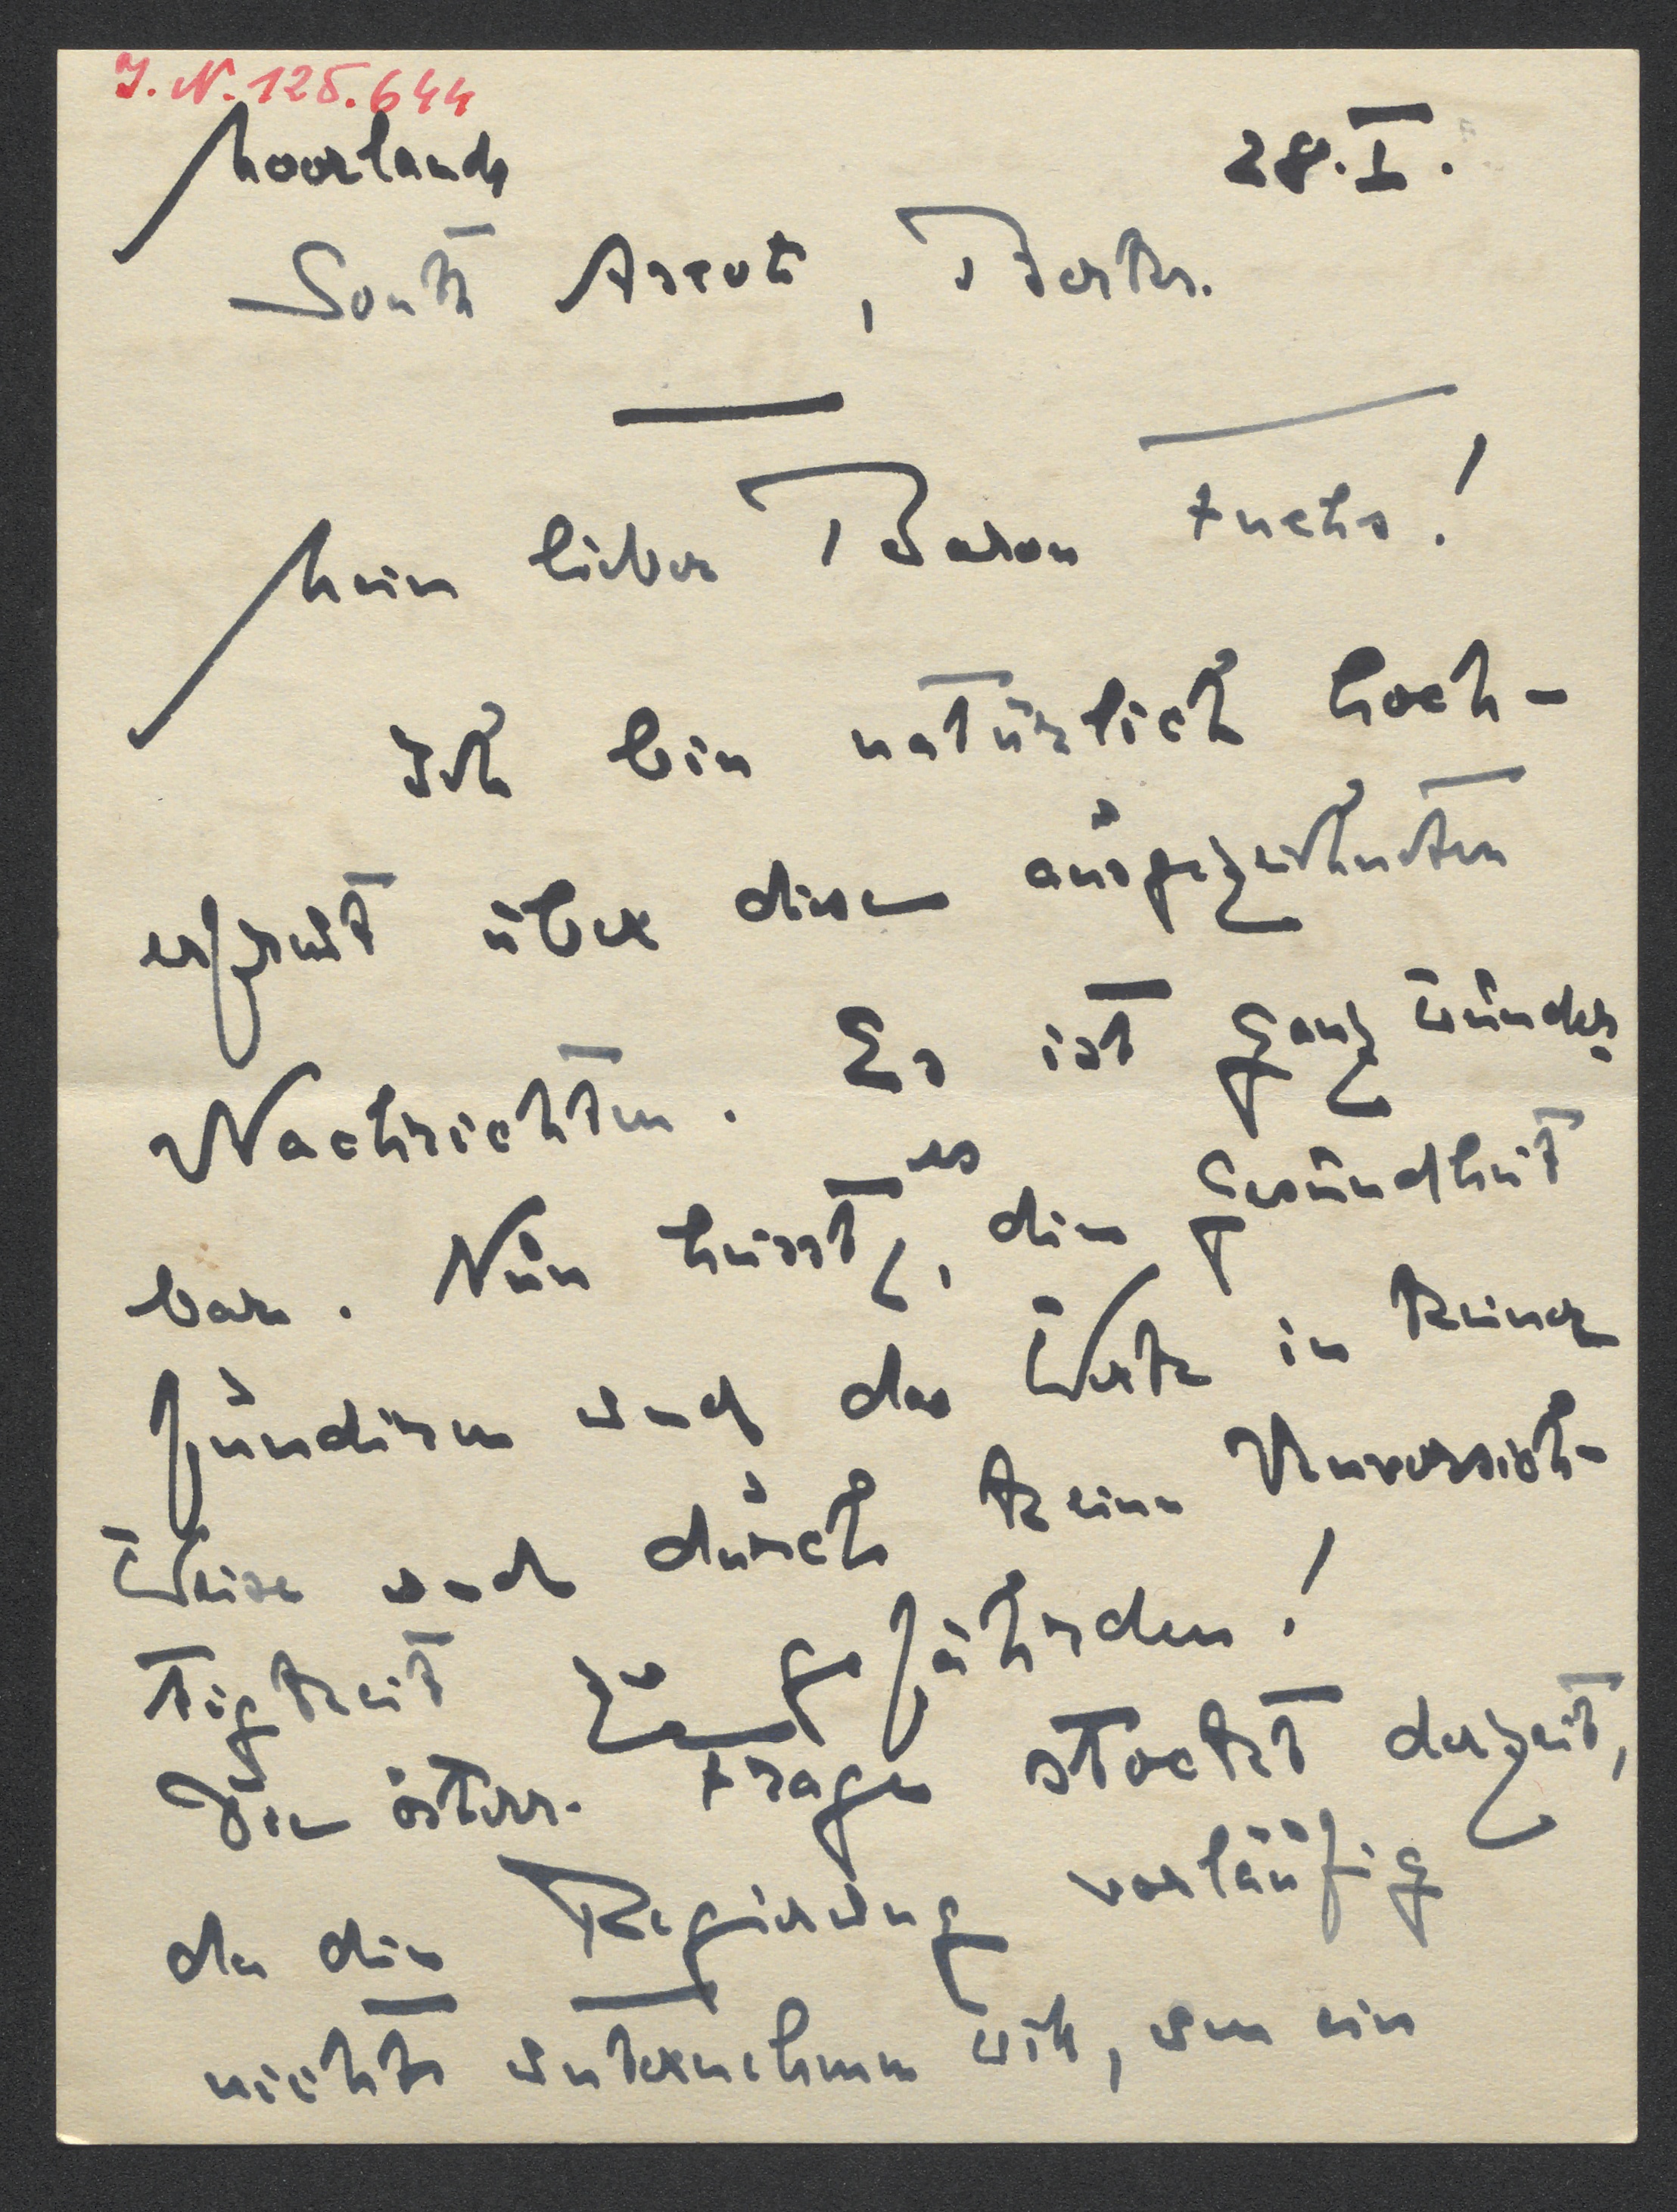 I. N. 125.644
Moorlands 28.I.
South Ascot, Berks.
Mein lieber Baron Fuchs!
Ich bin natürlich hoch-
erfreut über diese ausgezeichneten
Nachrichten. Es ist ganz wunder-
bar. Nun heisst es, die Gesundheit
fundieren und das Werk in keiner
Weise und durch keine Unvorsich-
tigkeit zu gefährden!
Die österr. Frage stockt derzeit,
da die Regierung vorläufig
nichts unternehmen will, um ein